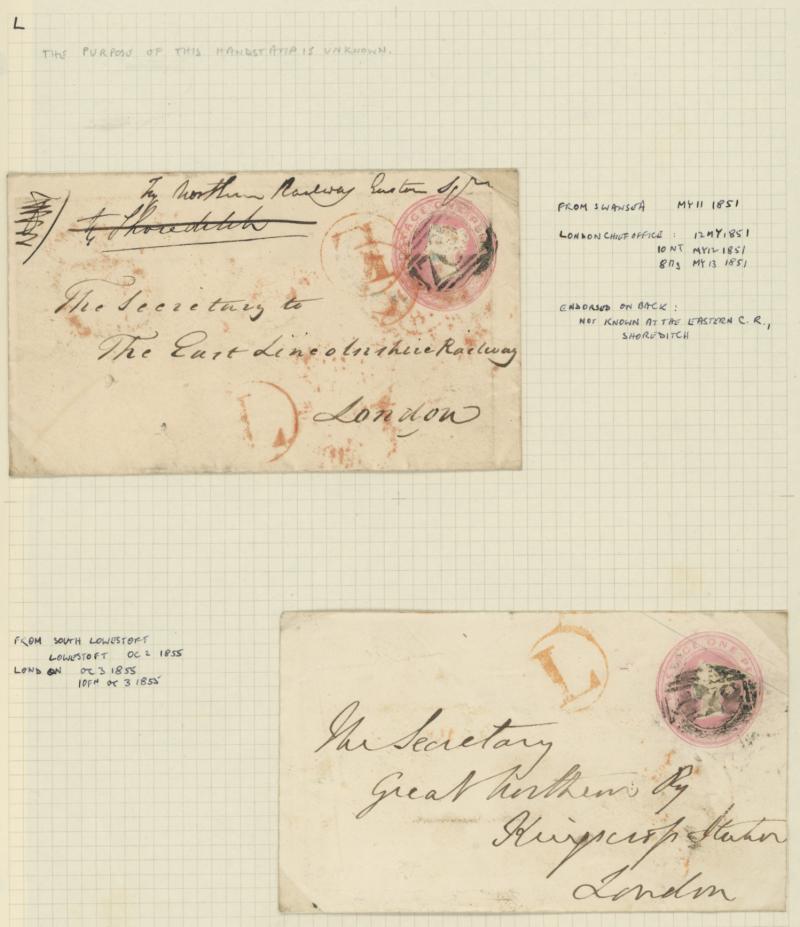 L
THE PURPOSE OF THIS HANDSTAMP IS UNKNOWN.
Try Northern Railway Eastern
Try Shoreditch
L
POSTAGE ONE PENNY
The Secretary to
The East Lincolnshire Railway
London
L
FROM SWANSEA MY 11 1851
LONDON CHIEF OFFICE : 12 MY 1851
10 NT MY 12 1851
8 Mg MY 13 1851
ENDORSED ON BACK :
NOT KNOWN AT THE EASTERN C. R.,
SHOREDITCH
FROM SOUTH LOWESTOFT
LOWESTOFT OC 2 1855
LONDON OC 3 1855
10FN OC 3 1855
L
POSTAGE ONE PE
The Secretary
Great Northern Ry
Kingscross Station
London